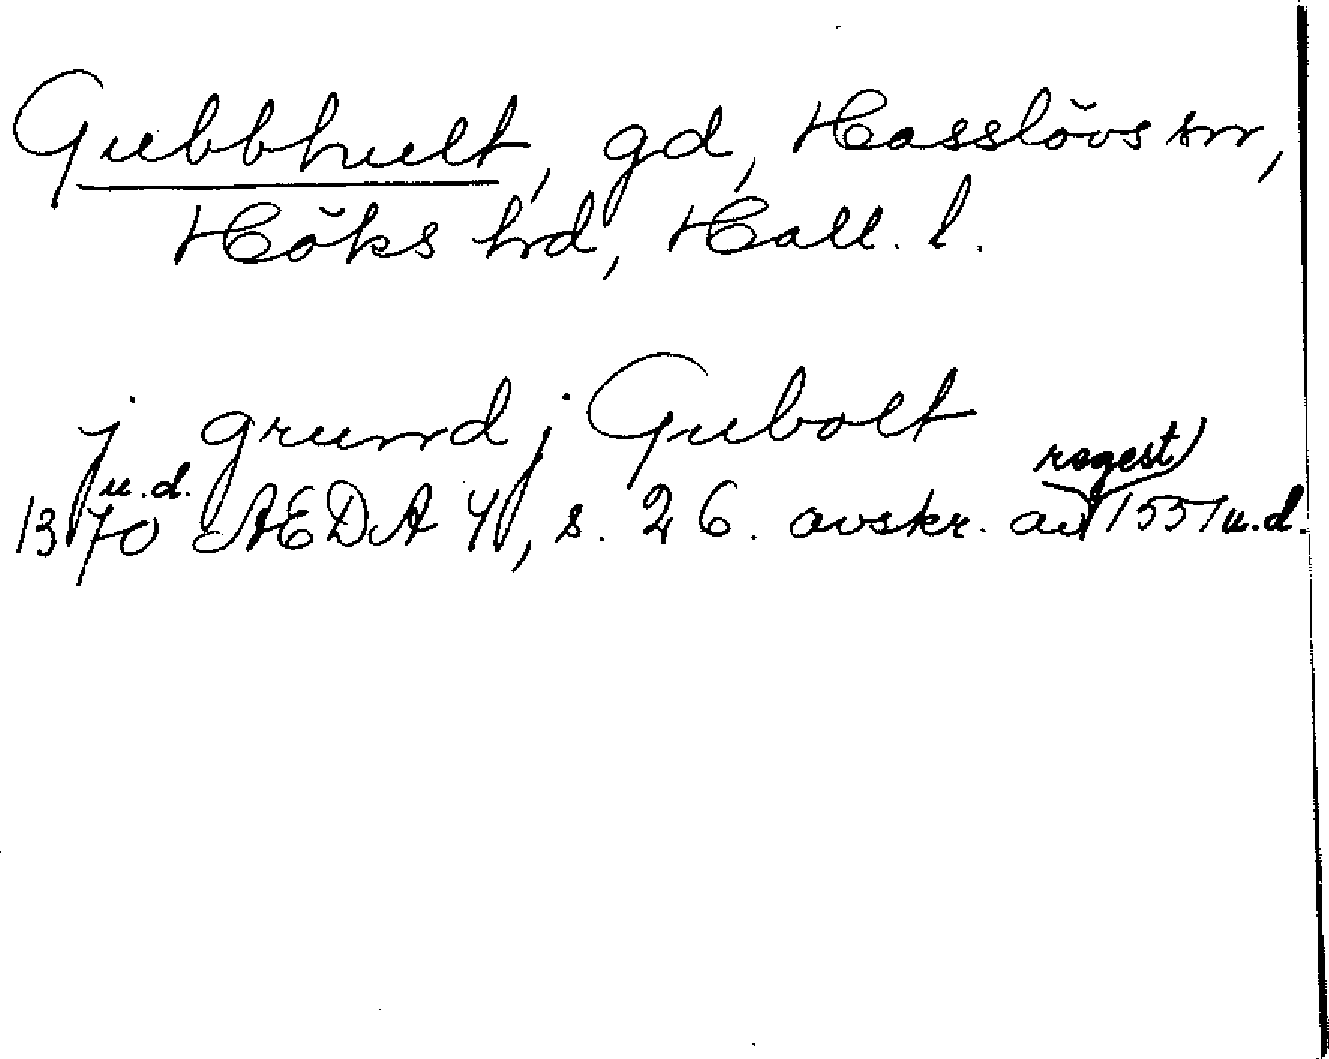 Gubbhult, gd, Hasslövs sn,
Höks hrd, Hall. l.
j grund j Gubolt
1370 u.d. ÆDA 4, s. 26. avskr. av regest 1551 u.d.